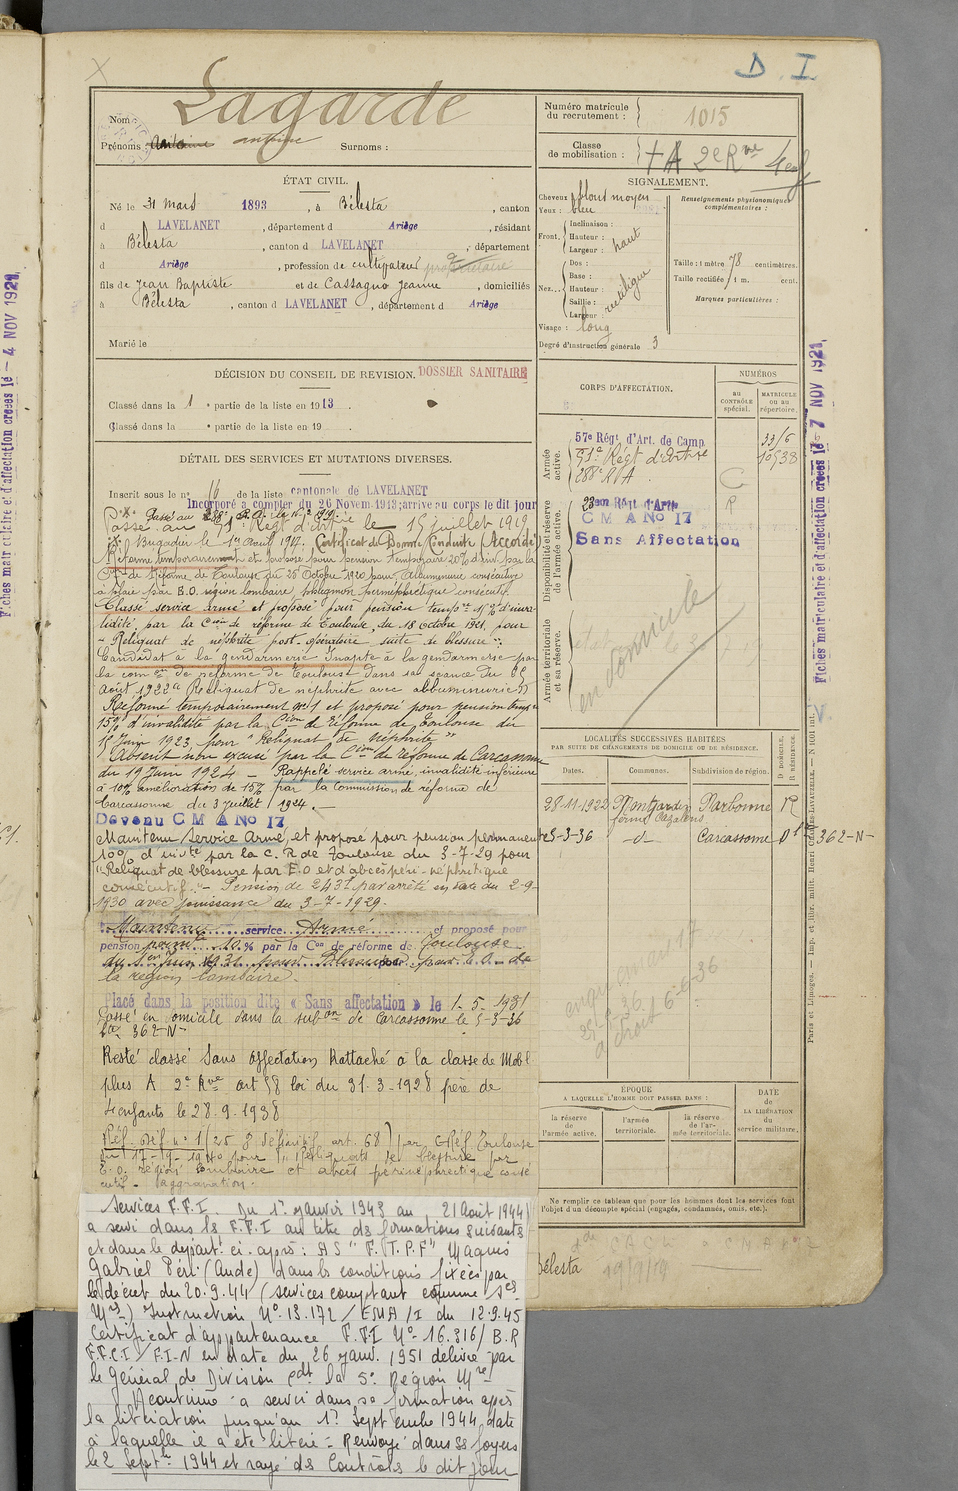 D. I.
Nom : Lagarde
Prénoms : Antoine antoine Surnoms :
Numéro matricule du recrutement : 1015
Classe de mobilisation : + A 2e Rve 4 enf
ÉTAT CIVIL.
Né le 31 Mars 1893, à Bélesta, canton
d LAVELANET, département d Ariège, résidant
à Bélesta, canton d LAVELANET, département
d Ariège, profession de cultivateur propriétaire
fils de Jean Baptiste et de Cassagno Jeanne, domiciliés
à Bélesta, canton d LAVELANET, département d Ariège
Marié le
SIGNALEMENT.
Cheveux blond moyen
Yeux : bleu
Front. Inclinaison :
Hauteur : haut
Largeur :
Nez. Dos : rectiligne
Base :
Hauteur :
Saillie :
Largeur :
Visage : long
Degré d'instruction générale 3
Renseignements physionomiques complémentaires :
Taille : 1 mètre 78 centimètres.
Taille rectifiée 1 m. cent.
Marques particulières :
DÉCISION DU CONSEIL DE REVISION. DOSSIER SANITAIRE
Classé dans la 1 e partie de la liste en 1913.
Classé dans la e partie de la liste en 19
DÉTAIL DES SERVICES ET MUTATIONS DIVERSES.
Inscrit sous le n° 16 de la liste cantonale de LAVELANET
Incorporé à compter du 26 Novem. 1913; arrivé au corps le dit jour
Passé au
Passé au Régt d'Artrie le 15 juillet 1919
Brigadier le 1er Avril 1917. Certificat de Bonne Conduite (Accordé)
Réforme temporairement et proposé pour pension temporaire 20% d'inv. par la
Con de Réforme de Toulouse du 25 Octobre 1920 pour Albuminurie consécutive
à plaie par E.O. région lombaire, phlegmon périnéphrétique consécutif.
Classé service armé et proposé pour pension tempre 15% d'inva-
lidité, par la Con de réforme de Toulouse, du 18 octobre 1921, pour
- Reliquat de néphrite post opératoire suite de blessure
Candidat à la gendarmerie Inapte à la gendarmerie par
la com on de réforme de Toulouse dans sa séance du 25
Août 1922 "Reliquat de néphrite avec albuminurie"
Réformé temporairement n°1 et proposé pour pension tempre
15% d'invalidité par la Cion de Réforme de Toulouse du
15 Juin 1923, pour "Reliquat de néphrite"
Absent non excusé par la Cion de réforme de Carcassonne
du 19 Juin 1924 - Rappelé service armé, invalidité inférieure
à 10% amélioration de 15% par la Commission de réforme de
Carcassonne du 3 Juillet 1924. -
Devenu C M A No 17
Maintenu Service Armé, et proposé pour pension permanente
10% d'invté par la C. R de Toulouse du 3-7-29 pour
"Reliquat de blessure par E.O et d'abcès péri-néphrétique
consécutif. - Pension de 243f par arrêté en date du 2-9-
1930 avec jouissance du 3-7-1929.
Maintenu service Armé et proposé pour
pension permte 10 % par la Con de réforme de Toulouse
du 1er Juin 1931 pour Blessure par E.O. de
la région lombaire.
Placé dans la position dite « Sans affectation » le 1-5-1931
Passé en domicile dans la subon de Carcassonne le 5-3-36
362-N-
Resté classé Sans Affectation Rattaché à la classe de Mobl
plus A 2e Rve art 58 loi du 31-3-1928 père de
4 enfants le 28-9-1938
Réf. Déf. n° 1 (25 % définitif art. 68) par C Réf Toulouse
E.O. région lombaire et abcès périnéphrétique consé
cutif - aggravation -
Services F.F.I. Du 1er janvier 1943 au 21 Août 1944
a servi dans les F.F.I au titre des formations suivantes
et dans le départt ci-après : AS "F.T.P.F" Maquis
Gabriel Péri (Aude) dans les conditions fixées par
le décret du 20.9.44 (services comptant comme sces
Mres) Instruction N° 18.172/EMA/I du 12.9.45
Certificat d'appartenance F.F.I N° 16.316/B.R
F.F.C.I/F.I-N en date du 26 janv. 1951 délivré par
le Général de Division Cdt la 5e Région Mre
A continué à servi dans sa formation après
la libération jusqu'au 1er Septembre 1944 date
à laquelle il a été libéré - Renvoyé dans ses foyers
le 2 Septbre 1944 et rayé des Contrôles le dit jour
CORPS D'AFFECTATION.
NUMÉROS
au CONTRÔLE spécial.
MATRICULE ou au répertoire.
Armée active.
57e Régt d'Art. de Camp.
51e Régt d'Artrie
Disponibilité et réserve de l'armée active.
23em Régt d'Artie R
C M A No 17
Sans Affectation
Armée territoriale et sa réserve.
en domicile
LOCALITÉS SUCCESSIVES HABITÉES
PAR SUITE DE CHANGEMENTS DE DOMICILE OU DE RÉSIDENCE.
Dates. Communes. Subdivision de région. D DOMICILE. R RÉSIDENCE.
28-11-1922 Narbonne R
5-3-36 -d- Carcassonne D 362-N-
ÉPOQUE
A LAQUELLE L'HOMME DOIT PASSER DANS :
la réserve de l'armée active.
l'armée territoriale.
la réserve de l'armée territoriale.
DATE de LA LIBÉRATION du service militaire.
Ne remplir ce tableau que pour les hommes dont les services font
l'objet d'un décompte spécial (engagés, condamnés, omis, etc.).
Bélesta
Fiches matriculaire et d'affectation créées le - 4 NOV 1921.
Fiches matriculaire et d'affectation créées le 7 NOV 1921.
Paris et Limoges. — Imp. et libr. milit. Henri CHARLES-LAVAUZELLE.